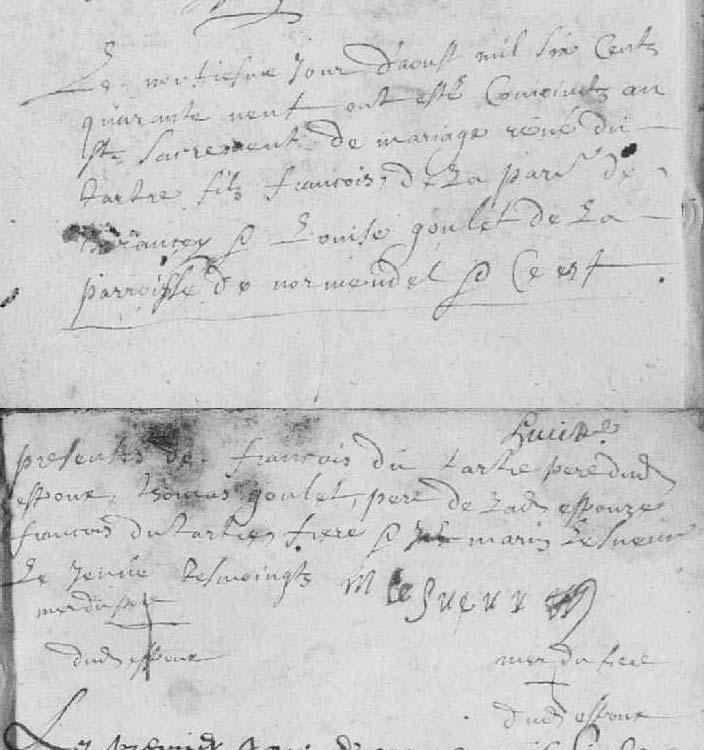 Le ventiesme Jour d'aoust mil six Cents
quarante neuf ont esté Conioincts au
st Sacrement de mariage réné du
tartre filz francois, de La par. de
Brancey & Louise goulet de La
parroisse de normendel & Ce est
presents de francois du tartre pere dud
espoux, thomas goulet, pere de Lad espouze
francois du tartre, frere & marin Lesueur
Le Jeune tesmoingts M le Sueur
mer du pere
dud espoux
mer du frere
dud espoux
Le premier Jour